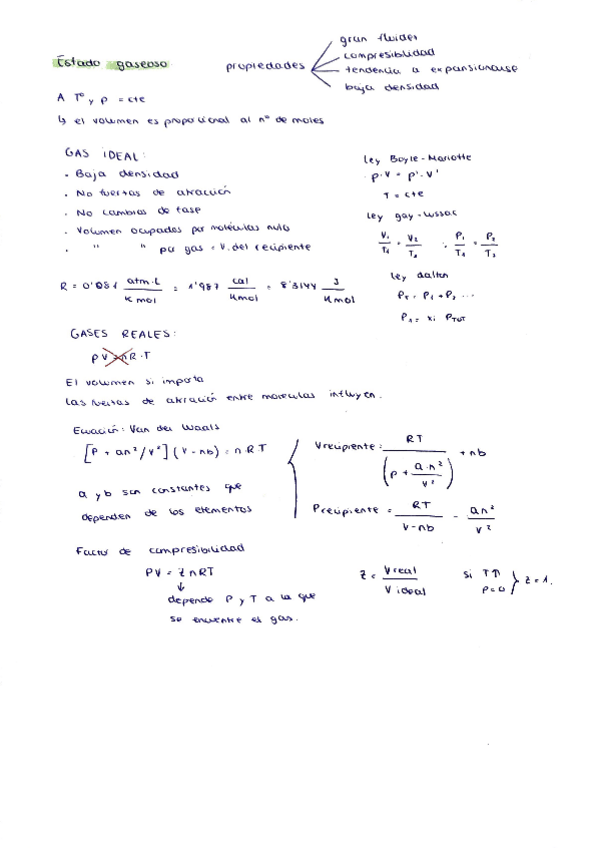 Estado gaseoso
propiedades
gran fluidez
compresibilidad
tendencia a expansionarse
baja densidad
A Tº y p = cte
↳ el volumen es proporcional al nº de moles
GAS IDEAL:
· Baja densidad
· No fuerzas de atracción
· No cambios de fase
· Volumen ocupados por moléculas nulo
· " " por gas = V. del recipiente
R = 0'081 atm·L / K mol = 1'987 cal / K mol = 8'3144 J / K mol
ley Boyle-Mariotte
p·V = p'·V'
T = cte
ley gay-lussac
V₁/T₁ = V₂/T₂ ; P₁/T₁ = P₂/T₂
ley dalton
P_T = P₁ + P₂ ...
P₁ = xi P_TOT
GASES REALES:
pV = nR·T
El volumen si importa
Las fuerzas de atracción entre moleculas influyen.
Ecuación: Van der Waals
[P + an²/V²] (V - nb) = n R T
a y b son constantes que
dependen de los elementos
V recipiente = RT / (P + a·n²/V²) + nb
P recipiente = RT / V - nb - an²/V²
Factor de compresibilidad
PV = Z n RT
↓
depende P y T a la que
se encuentre el gas.
Z = V real / V ideal
si T↑↑
P = 0 } z = 1.